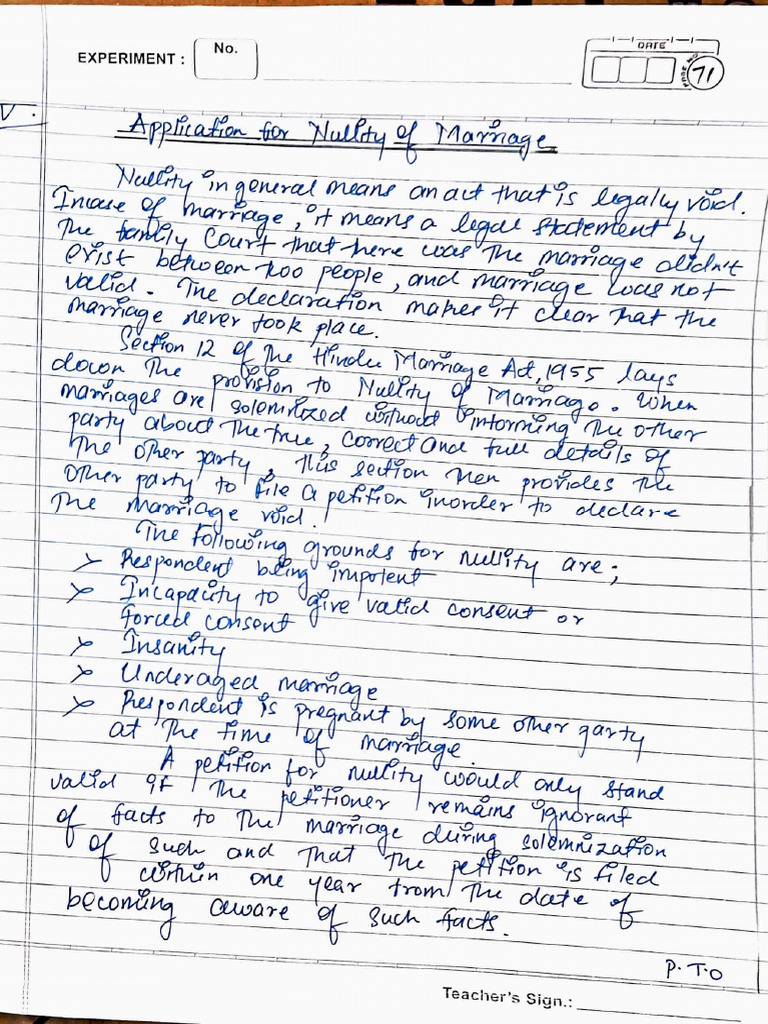 EXPERIMENT :
No.
DATE
PAGE NO.
71
V.
Application for Nullity of Marriage
Nullity in general means an act that is legally void.
Incase of marriage, it means a legal statement by
The family Court that there was the marriage didn't
exist between two people, and marriage was not
valid. The declaration makes it clear that the
marriage never took place.
Section 12 of The Hindu Marriage Act, 1955 lays
down The provision to Nullity of Marriage. When
marriages are solemnized without informing The other
party about The true, correct and full details of
The other party, this section then provides The
other party to file a petition inorder to declare
The marriage void.
The following grounds for nullity are;
> Respondent being impotent
> Incapacity to give valid consent or
forced consent
> Insanity
> Underaged marriage
> Respondent is pregnant by some other party
at The time of marriage.
A petition for nullity would only stand
valid if The petitioner remains ignorant
of facts to The marriage during solemnization
of such and That The petition is filed
within one year from The date of
becoming aware of such facts.
P.T.O
Teacher's Sign.: